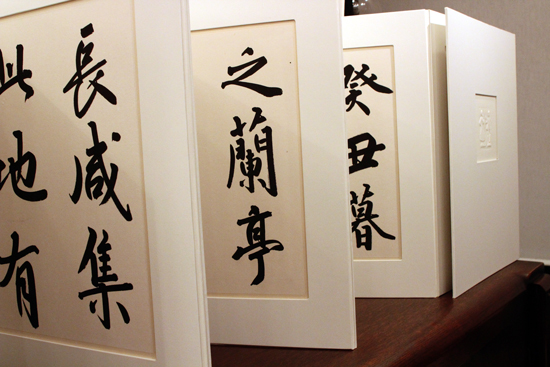 癸丑暮
之蘭亭
長咸集
此地有